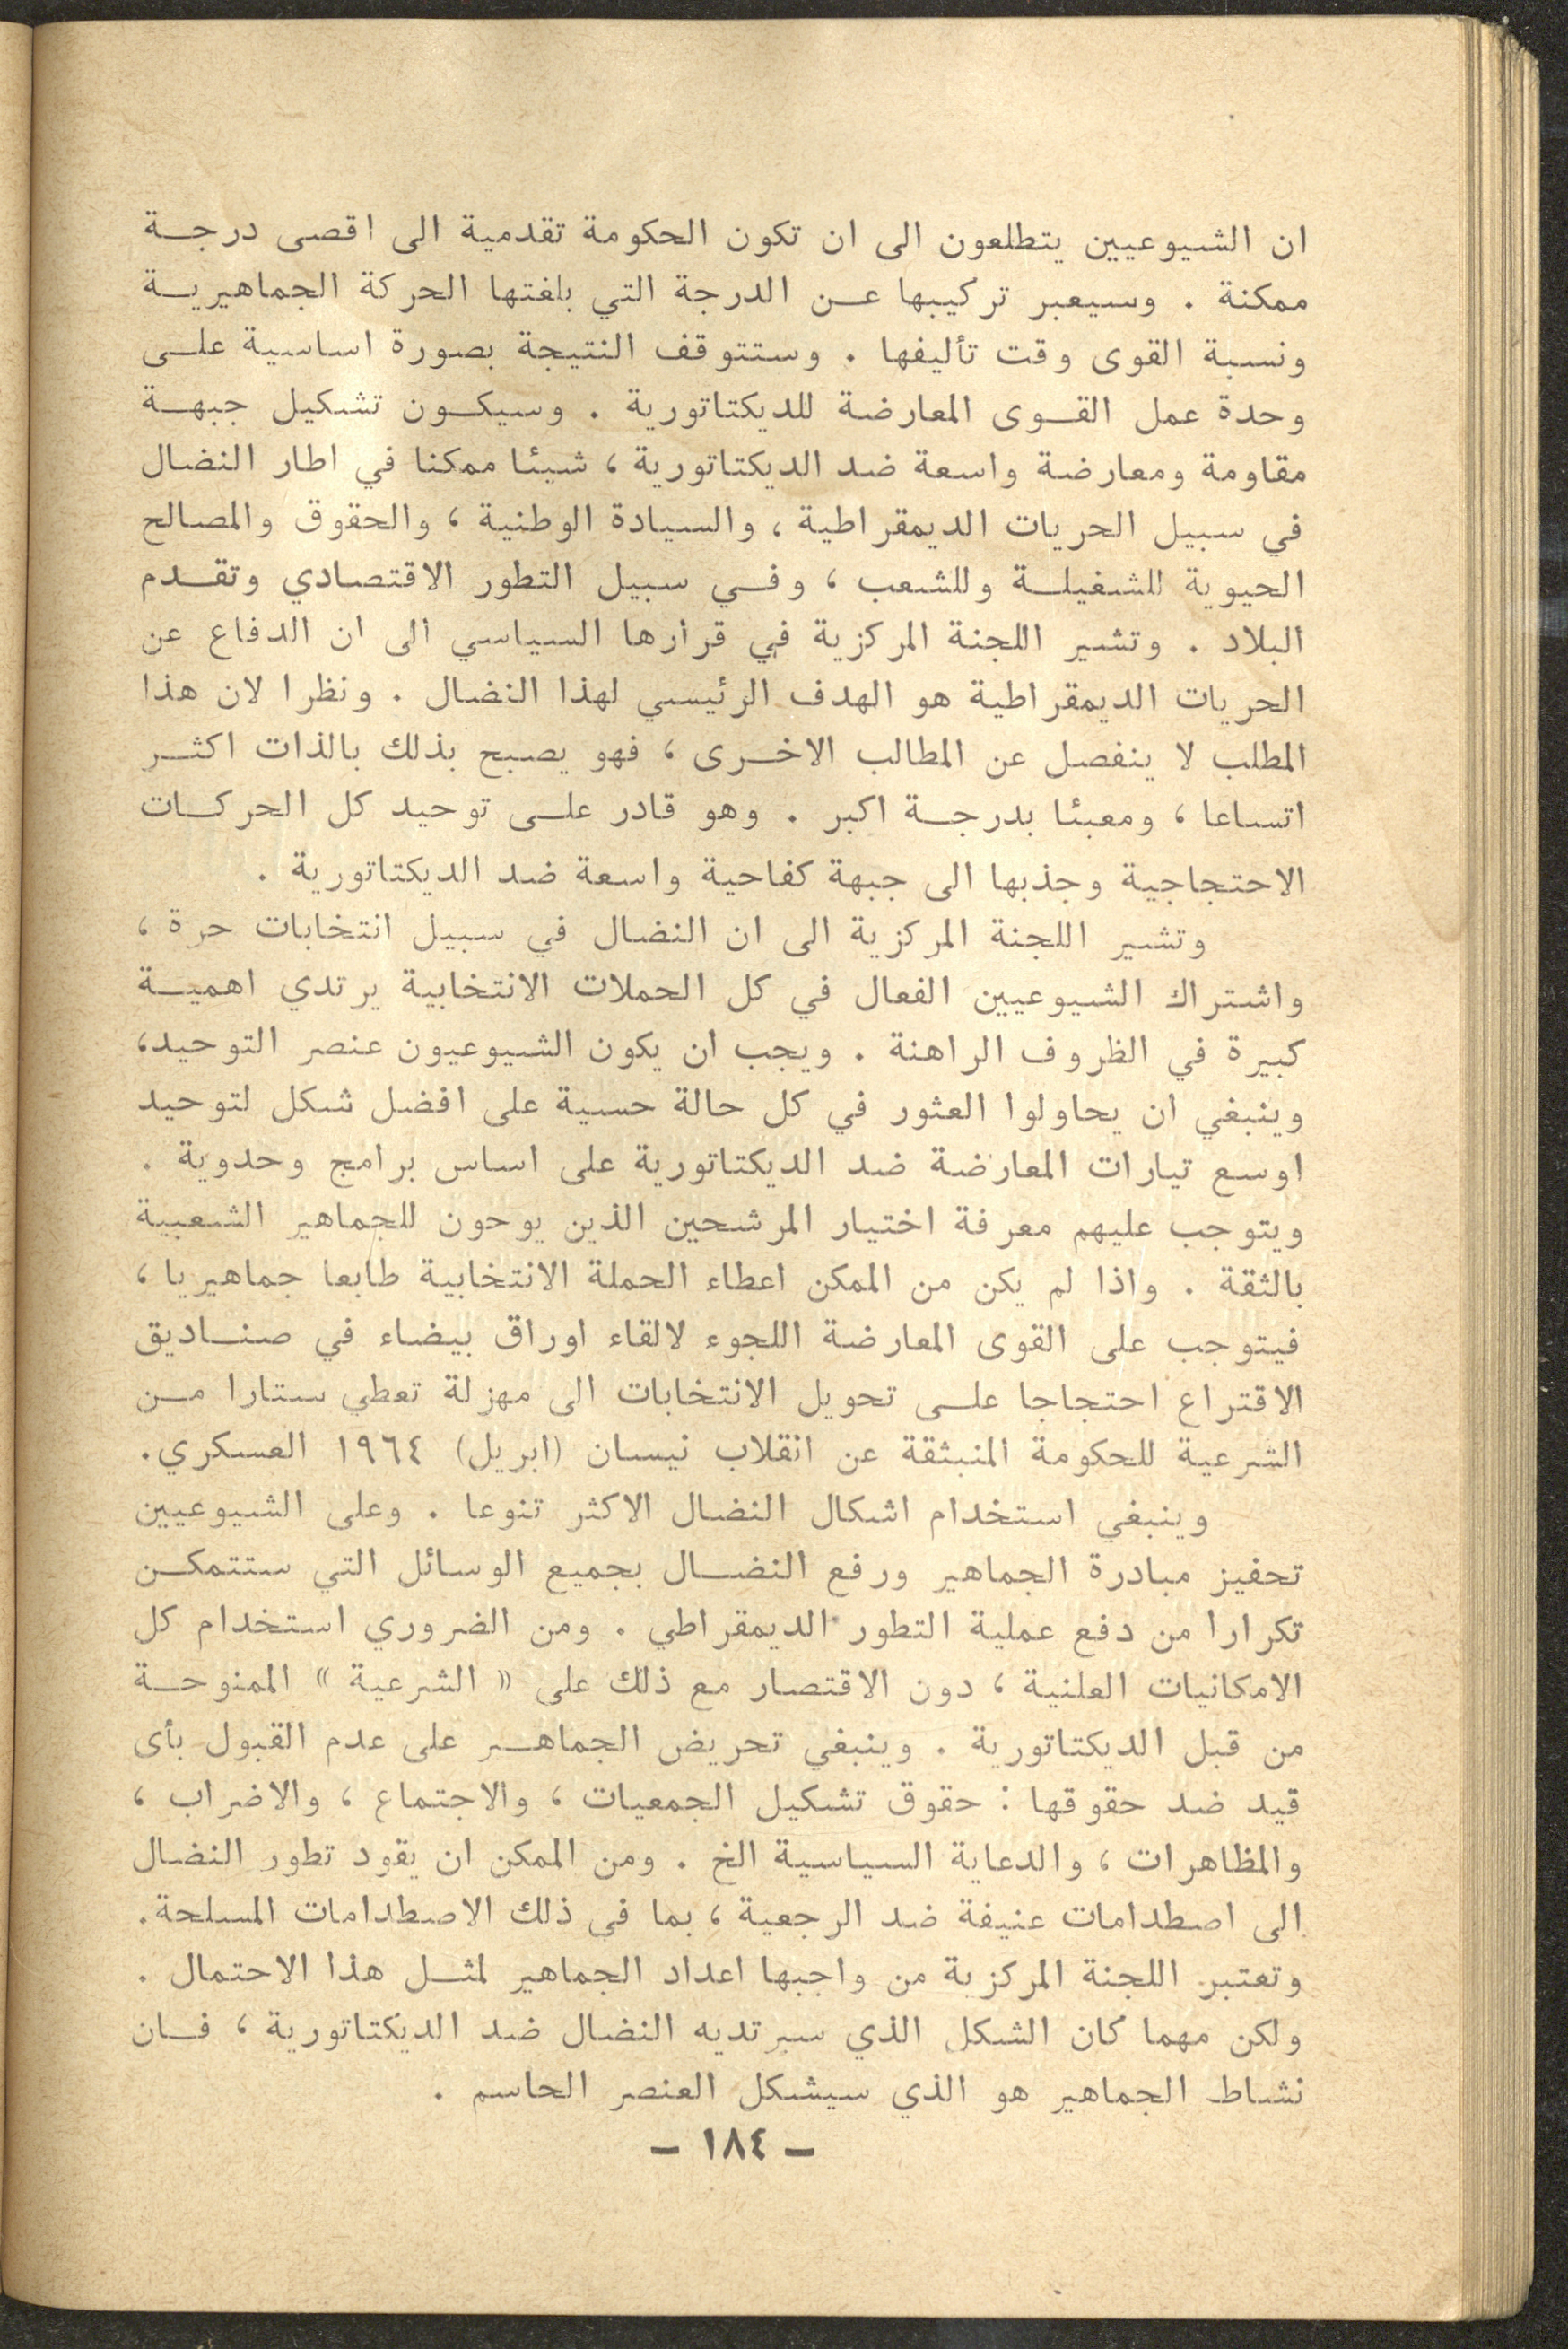 ان الشيوعيين يتطلعون الى ان تكون الحكومة تقدمية الى اقصى درجة
ممكنة . وسيعبر تركيبها عن الدرجة التي بلغتها الحركة الجماهيرية
ونسبة القوى وقت تأليفها . وستتوقف النتيجة بصورة اساسية على
وحدة عمل القوى المعارضة للديكتاتورية . وسيكون تشكيل جبهة
مقاومة ومعارضة واسعة ضد الديكتاتورية ، شيئا ممكنا في اطار النضال
في سبيل الحريات الديمقراطية ، والسيادة الوطنية ، والحقوق والمصالح
الحيوية للشغيلة وللشعب ، وفي سبيل التطور الاقتصادي وتقدم
البلاد . وتشير اللجنة المركزية في قرارها السياسي الى ان الدفاع عن
الحريات الديمقراطية هو الهدف الرئيسي لهذا النضال . ونظرا لان هذا
المطلب لا ينفصل عن المطالب الاخرى ، فهو يصبح بذلك بالذات اكثر
اتساعا ، ومعبئا بدرجة اكبر . وهو قادر على توحيد كل الحركات
الاحتجاجية وجذبها الى جبهة كفاحية واسعة ضد الديكتاتورية .
وتشير اللجنة المركزية الى ان النضال في سبيل انتخابات حرة ،
واشتراك الشيوعيين الفعال في كل الحملات الانتخابية يرتدي اهمية
كبيرة في الظروف الراهنة . ويجب ان يكون الشيوعيون عنصر التوحيد،
وينبغي ان يحاولوا العثور في كل حالة حسية على افضل شكل لتوحيد
اوسع تيارات المعارضة ضد الديكتاتورية على اساس برامج وحدوية .
ويتوجب عليهم معرفة اختيار المرشحين الذين يوحون للجماهير الشعبية
بالثقة . واذا لم يكن من الممكن اعطاء الحملة الانتخابية طابعا جماهيريا ،
فيتوجب على القوى المعارضة اللجوء لالقاء اوراق بيضاء في صناديق
الاقتراع احتجاجا على تحويل الانتخابات الى مهزلة تعطي ستارا من
الشرعية للحكومة المنبثقة عن انقلاب نيسان (ابريل) ١٩٦٤ العسكري.
وينبغي استخدام اشكال النضال الاكثر تنوعا . وعلى الشيوعيين
تحفيز مبادرة الجماهير ورفع النضال بجميع الوسائل التي ستتمكن
تكرارا من دفع عملية التطور الديمقراطي . ومن الضروري استخدام كل
الامكانيات العلنية ، دون الاقتصار مع ذلك على « الشرعية » الممنوحة
من قبل الديكتاتورية . وينبغي تحريض الجماهير على عدم القبول بأى
قيد ضد حقوقها : حقوق تشكيل الجمعيات ، والاجتماع ، والاضراب ،
والمظاهرات ، والدعاية السياسية الخ . ومن الممكن ان يقود تطور النضال
الى اصطدامات عنيفة ضد الرجعية ، بما في ذلك الاصطدامات المسلحة.
وتعتبر اللجنة المركزية من واجبها اعداد الجماهير لمثل هذا الاحتمال .
ولكن مهما كان الشكل الذي سيرتديه النضال ضد الديكتاتورية ، فان
نشاط الجماهير هو الذي سيشكل العنصر الحاسم .
– ١٨٤ –